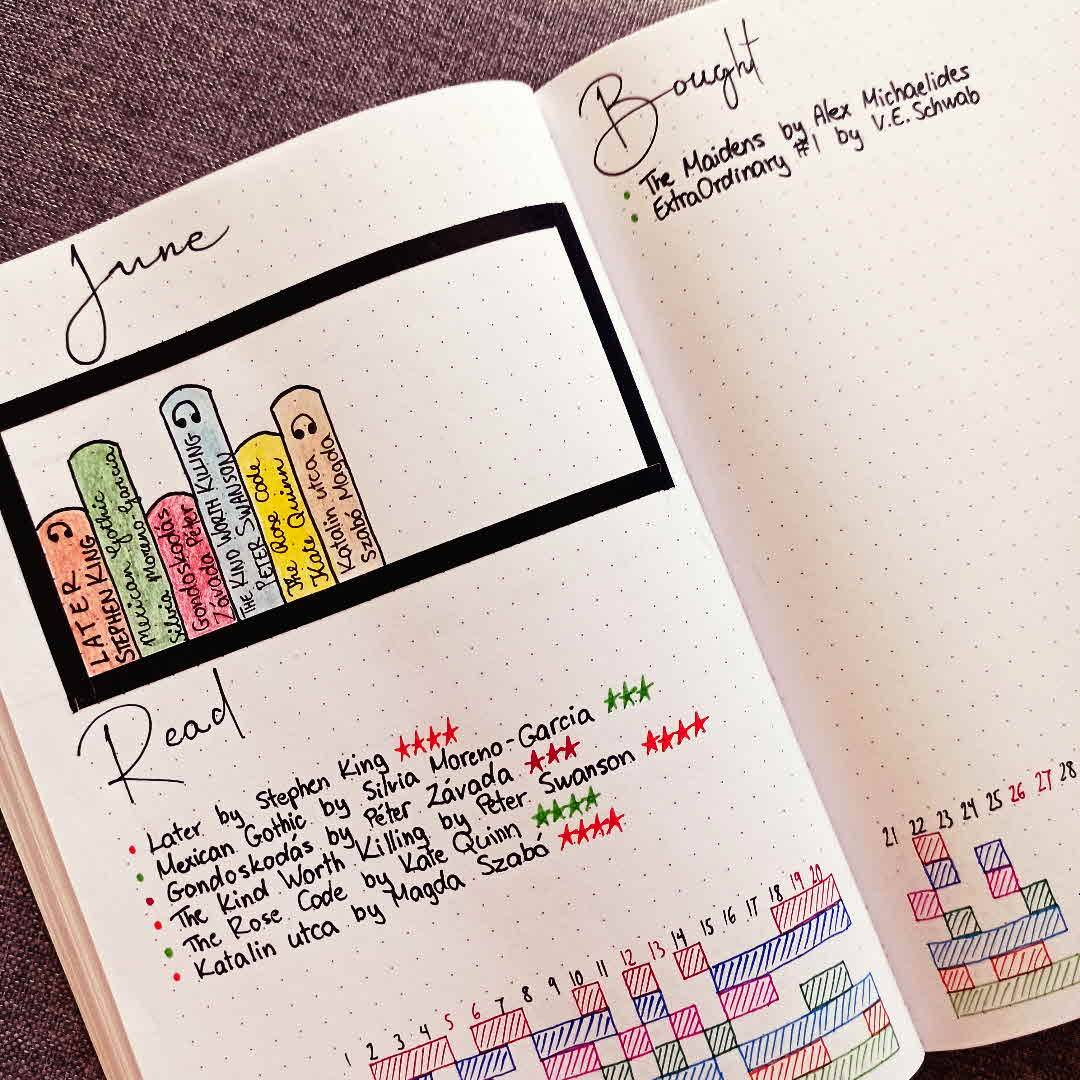 June
LATER
STEPHEN KING
Mexican Gothic
Silvia Moreno Garcia
Gondoskodás
Závada Péter
THE KIND WORTH KILLING
PETER SWANSON
The Rose Code
Kate Quinn
Katalin utca
Szabó Magda
Read
• Later by Stephen King ★★★★
• Mexican Gothic by Silvia Moreno-Garcia ★★★
• Gondoskodás by Péter Závada ★★★
• The Kind Worth Killing by Peter Swanson ★★★★
• The Rose Code by Kate Quinn ★★★★
• Katalin utca by Magda Szabó ★★★★
1 2 3 4 5 6 7 8 9 10 11 12 13 14 15 16 17 18 19 20
Bought
• The Maidens by Alex Michaelides
• ExtraOrdinary #1 by V.E. Schwab
21 22 23 24 25 26 27 28